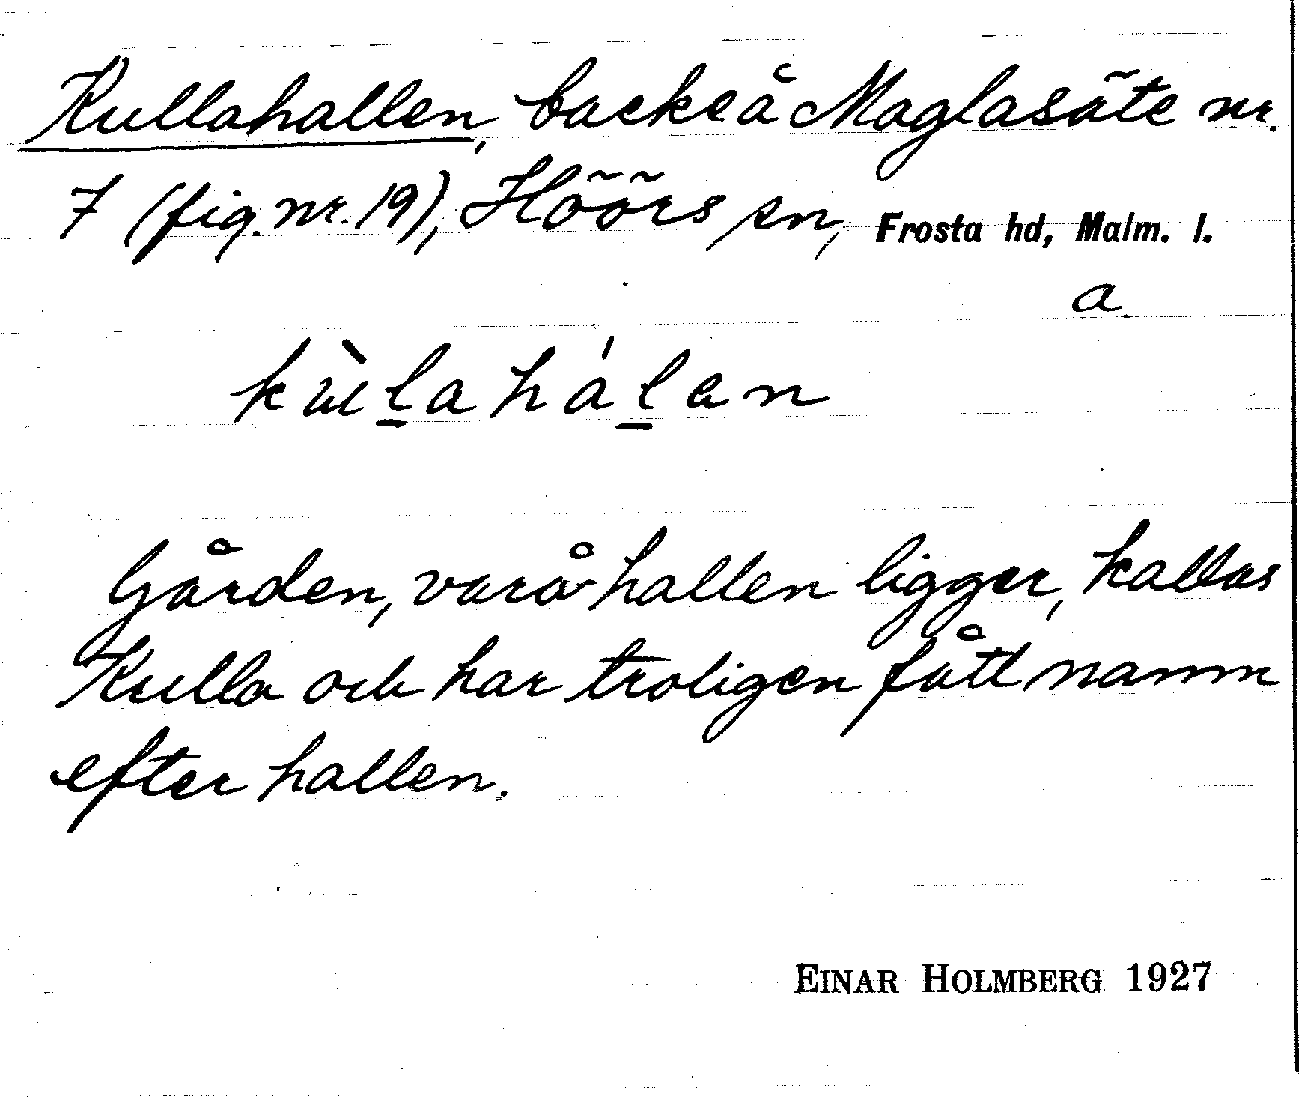 Kullahallen, backe å Maglasäte nr.
7 (fig. nr. 19), Höörs sn, Frosta hd, Malm. l.
a
kùlahálen
Gården, varå hallen ligger, kallas
Kulla och har troligen fått namn
efter hallen.
EINAR HOLMBERG 1927